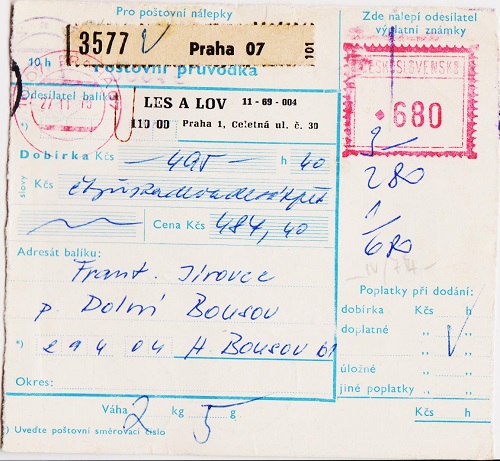 Pro poštovní nálepky
Zde nalepí odesílatel
výplatní známky
3577
Praha 07
101
10 h
Poštovní průvodka
ČESKOSLOVENSKO
680
Odesílatel balíku:
LES A LOV 11-69-004
*) 110 00 Praha 1, Celetná ul. č. 30
Dobírka Kčs — 495 — h 40
280
slovy Kčs
Cena Kčs 484,40
1
680
Adresát balíku:
Frant. Jirovec
p. Dolní Bousov
*) 294 04 H. Bousov 61
Poplatky při dodání:
Kčs h
dobírka
doplatné
úložné
jiné poplatky
Kčs h
Okres:
Váha 2 kg 5 g
*) Uveďte poštovní směrovací číslo